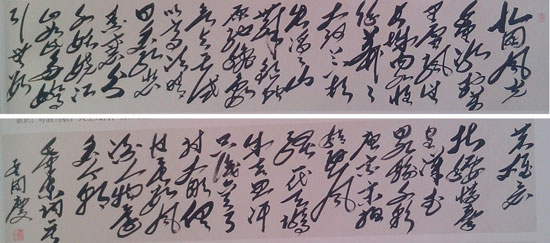 北国风光
千里冰封万
里雪飘望
长城内外惟
馀莽莽
大河上下顿
失滔滔山
舞银蛇
原驰蜡象
欲与天公试
比高须晴
日看红装
素裹分
外妖娆江
山如此多娇
引无数
英雄竞
折腰惜秦
皇汉武
略输文采
唐宗宋祖
稍逊风
骚一代天骄
成吉思汗
只识弯弓
射大雕俱
往矣数风
流人物还
看今朝